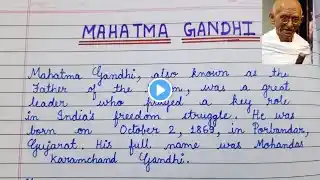 MAHATMA GANDHI
Mahatma Gandhi, also known as the
Father of the, was a great
leader who played a key role
in India's freedom struggle. He was
born on October 2, 1869, in Porbandar,
Gujarat. His full name was Mohandas
Karamchand Gandhi.